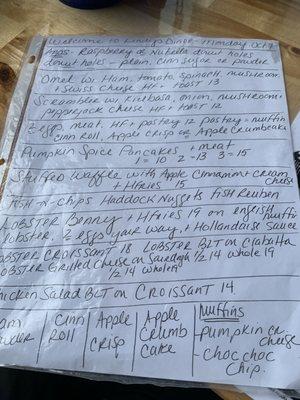 Welcome to Diner - Monday Oct
Apps - Raspberry or Nutella donut holes
donut holes - plain, cinn sugar or powder
Omel w/ Ham, tomato, spinach, mushroom
+ Swiss Cheese HF + toast 13
Scrambler w/ Kielbasa, onion, mushroom +
pepperjack Cheese HF + toast 12
2 eggs, meat, HF + pastry 12 pastry = muffin
Cinn Roll, Apple Crisp or Apple Crumbcake
Pumpkin Spice Pancakes + meat
1 = 10 2 - 13 3 = 15
Stuffed Waffle with Apple Cinnamon + Cream Cheese
+ HFries 15
Fish-n-Chips Haddock Nuggets Fish Reuben
Lobster Benny + HFries 19 on english muffin
lobster, 2 eggs your way, + Hollandaise Sauce
Lobster Croissant 18 Lobster BLT on Ciabatta
Lobster Grilled Cheese on Sourdough 1/2 14 whole 19
1/2 14 whole 19
Chicken Salad BLT on Croissant 14
Cinn Roll
Apple Crisp
Apple Crumb Cake
Muffins
- Pumpkin Cr Cheese
- Choc choc chip.